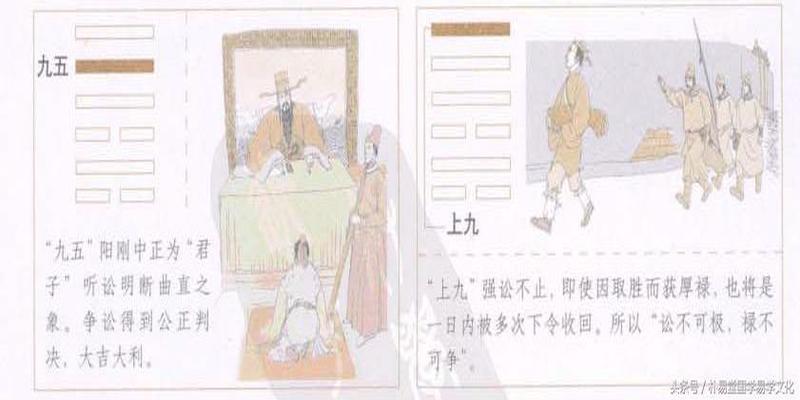 九五
“九五”阳刚中正为“君
子”听讼明断曲直之
象。争讼得到公正判
决，大吉大利。
上九
“上九”强讼不止，即使因取胜而获厚禄，也将是
一日内被多次下令收回。所以“讼不可极，禄不
可争”。
头条号 / 朴易堂国学易学文化